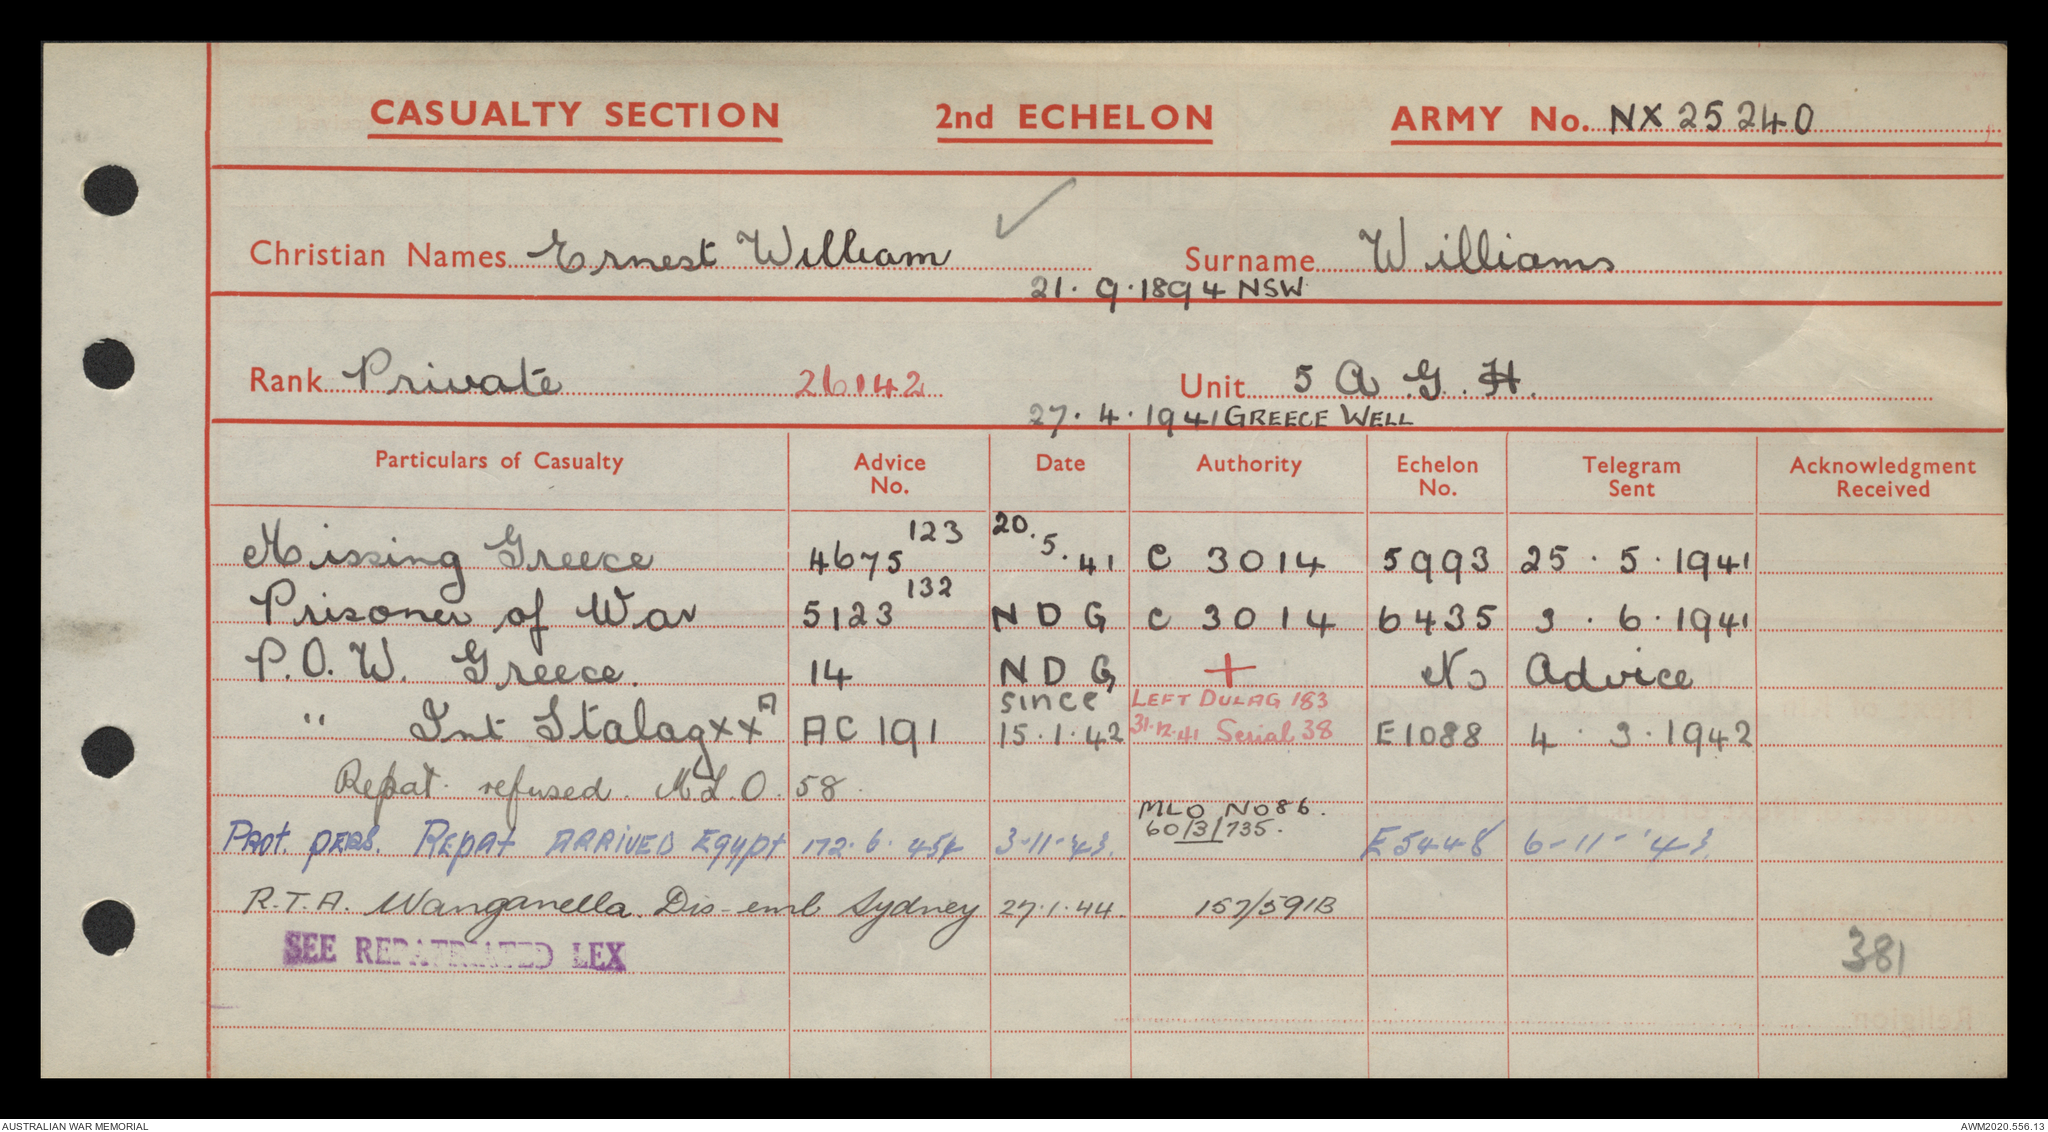 CASUALTY SECTION 2nd ECHELON ARMY No. NX 25240
Christian Names Ernest William Surname Williams
21.9.1894 NSW
Rank Private 26142 Unit 5 A.G.H.
27.4.1941 GREECE WELL
Particulars of Casualty Advice No. Date Authority Echelon No. Telegram Sent Acknowledgment Received
Missing Greece 4675 123 20.5.41 C 3014 5993 25.5.1941
Prisoner of War 5123 132 N D G C 3014 6435 3.6.1941
P.O.W. Greece. 14 N D G + No Advice
" Int Stalag XX A AC 191 since 15.1.42 LEFT DULAG 183 31.12.41 Serial 38 E1088 4.3.1942
Repat. refused. M L O. 58.
MLO No 86.
Prot. pers. Repat ARRIVED Egypt 172.6.454 3-11-'43. 60/3/735. E5448 6-11-'43.
R.T.A. Wanganella. Dis-emb Sydney 27.1.44. 157/591B
SEE REPATRIATED LEX
381
AUSTRALIAN WAR MEMORIAL AWM2020.556.13